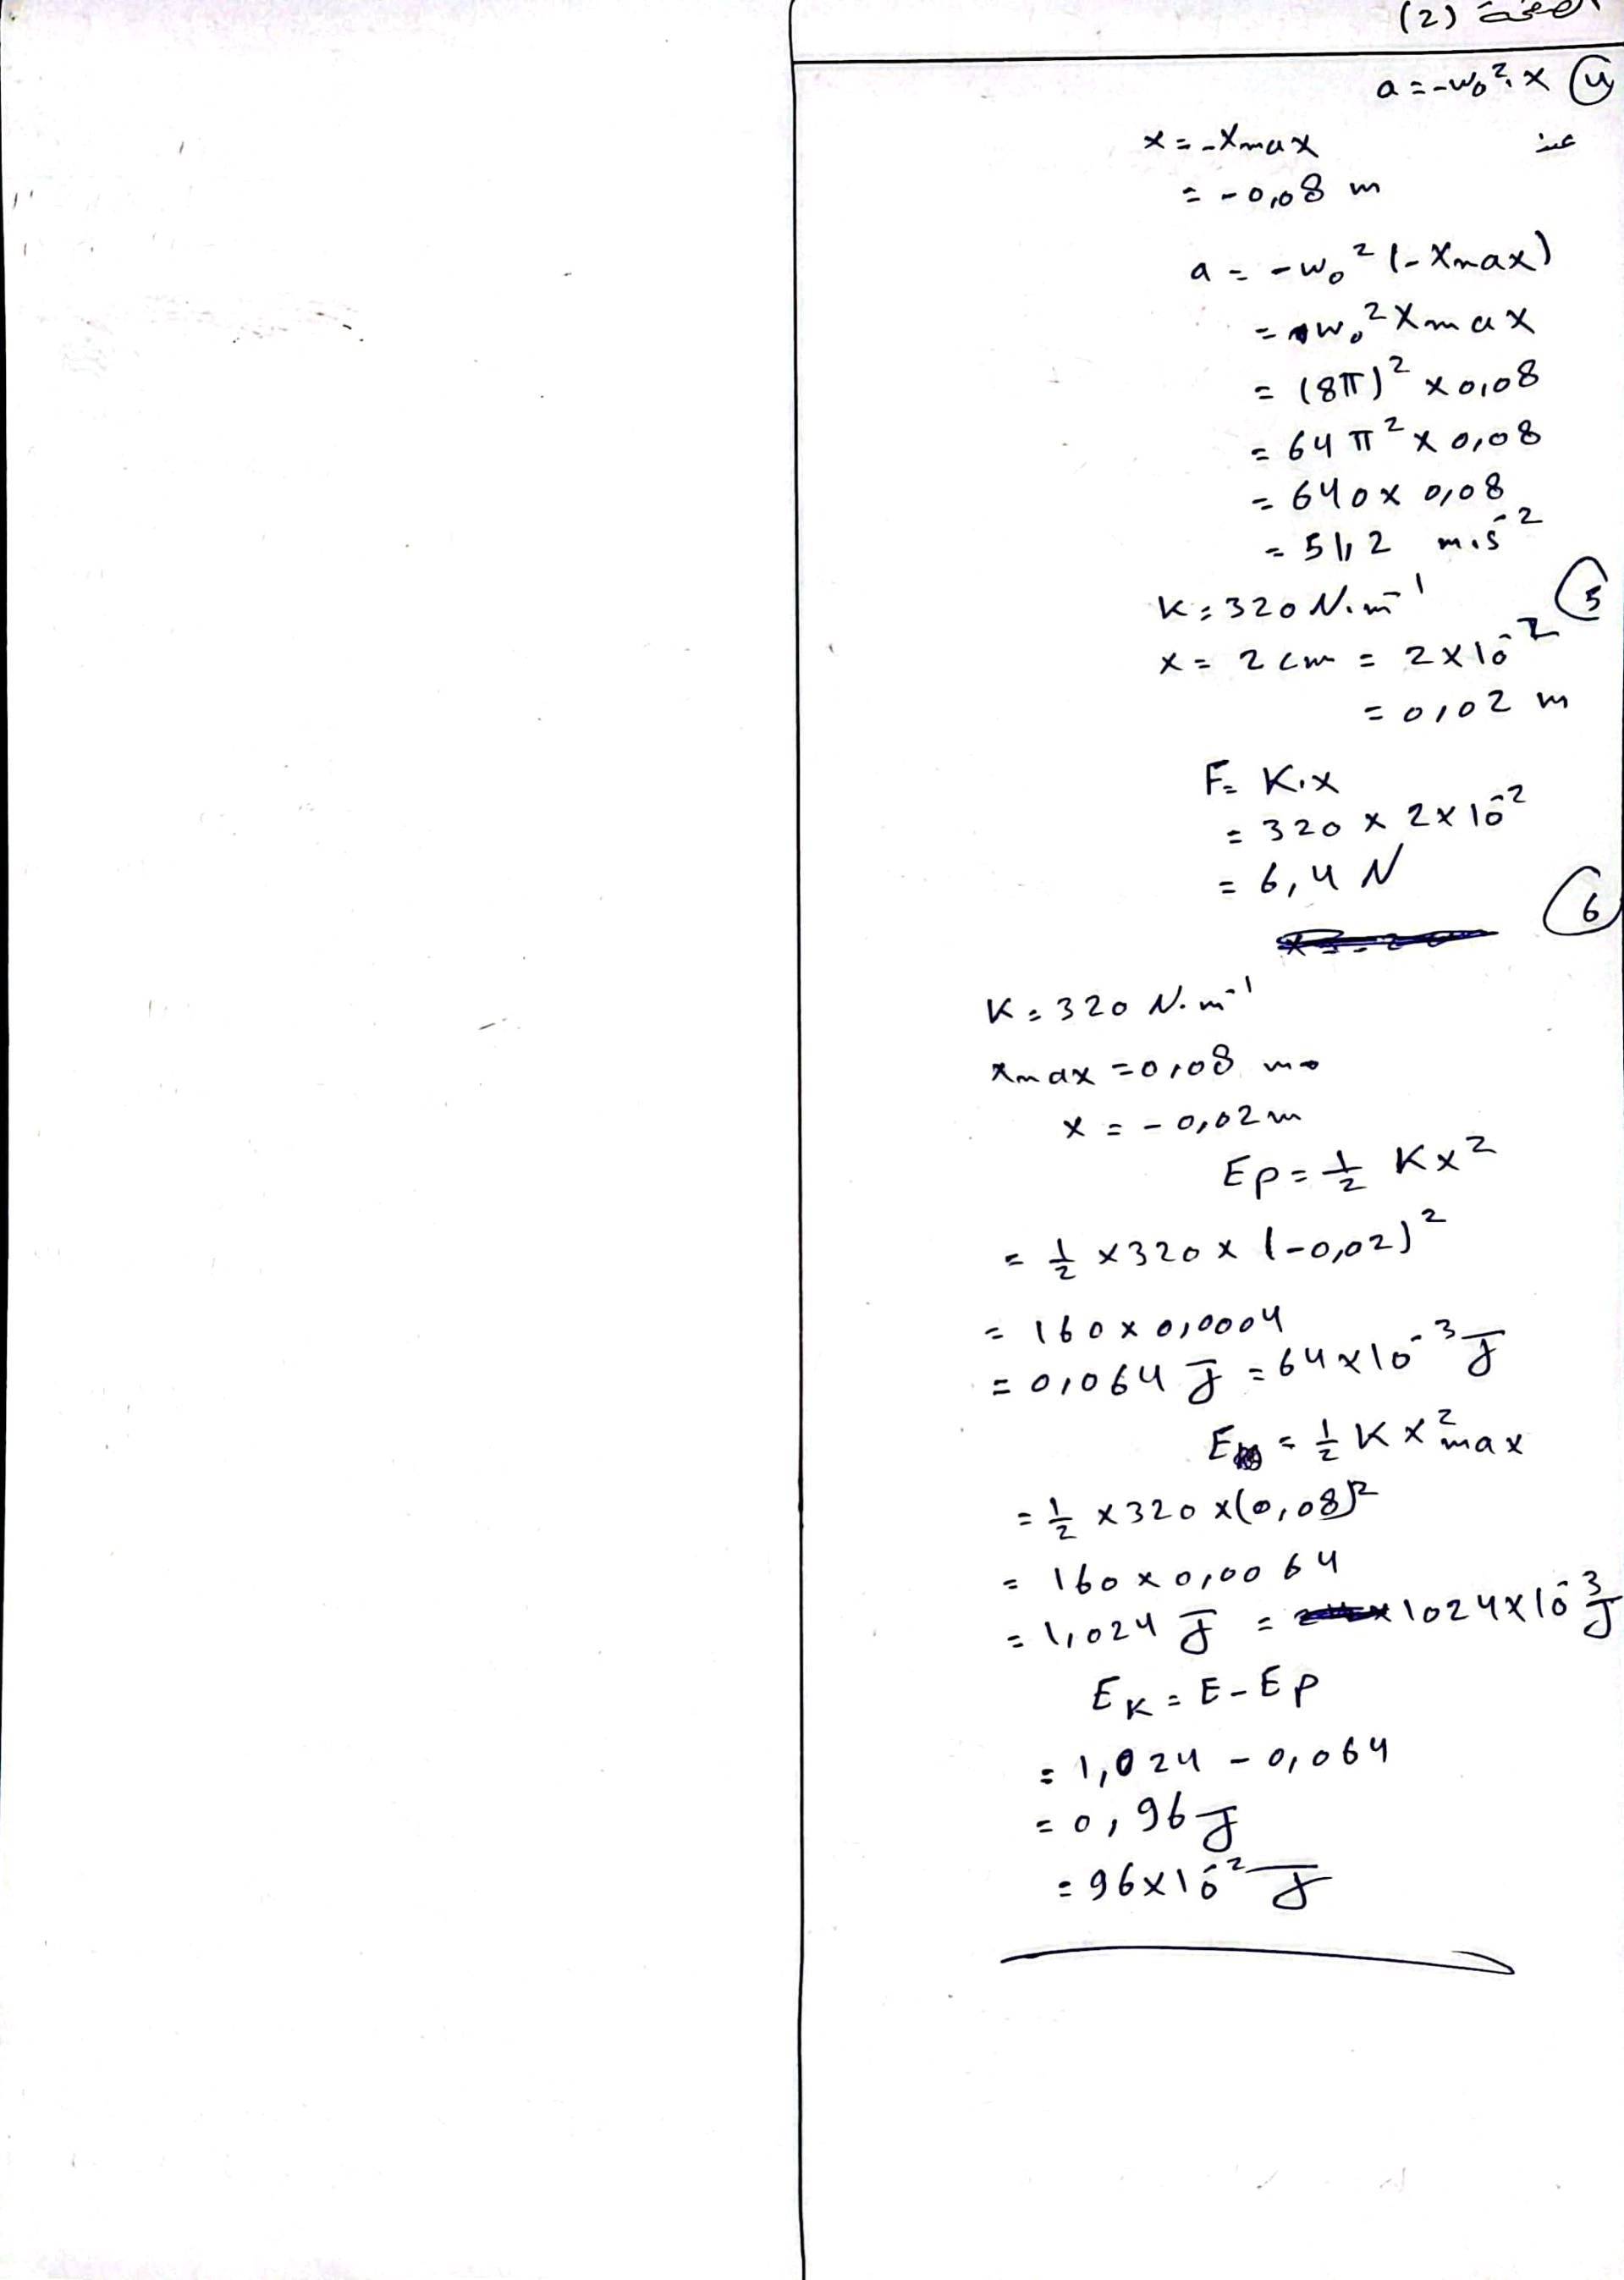 الصفحة (2)
④ a = -w₀². x
عند x = -Xmax
= -0,08 m
a = -w₀² (-Xmax)
= w₀² Xmax
= (8π)² × 0,08
= 64 π² × 0,08
= 640 × 0,08
= 51,2 m.s⁻²
⑤ K = 320 N.m⁻¹
x = 2 cm = 2×10⁻²
= 0,02 m
F = K.x
= 320 × 2×10⁻²
= 6,4 N
⑥
K = 320 N.m⁻¹
xmax = 0,08 m
x = -0,02 m
Ep = ½ Kx²
= ½ × 320 × (-0,02)²
= 160 × 0,0004
= 0,064 J = 64×10⁻³ J
E = ½ K X²max
= ½ × 320 × (0,08)²
= 160 × 0,0064
= 1,024 J = 1024×10⁻³ J
EK = E - Ep
= 1,024 - 0,064
= 0,96 J
= 96×10⁻² J